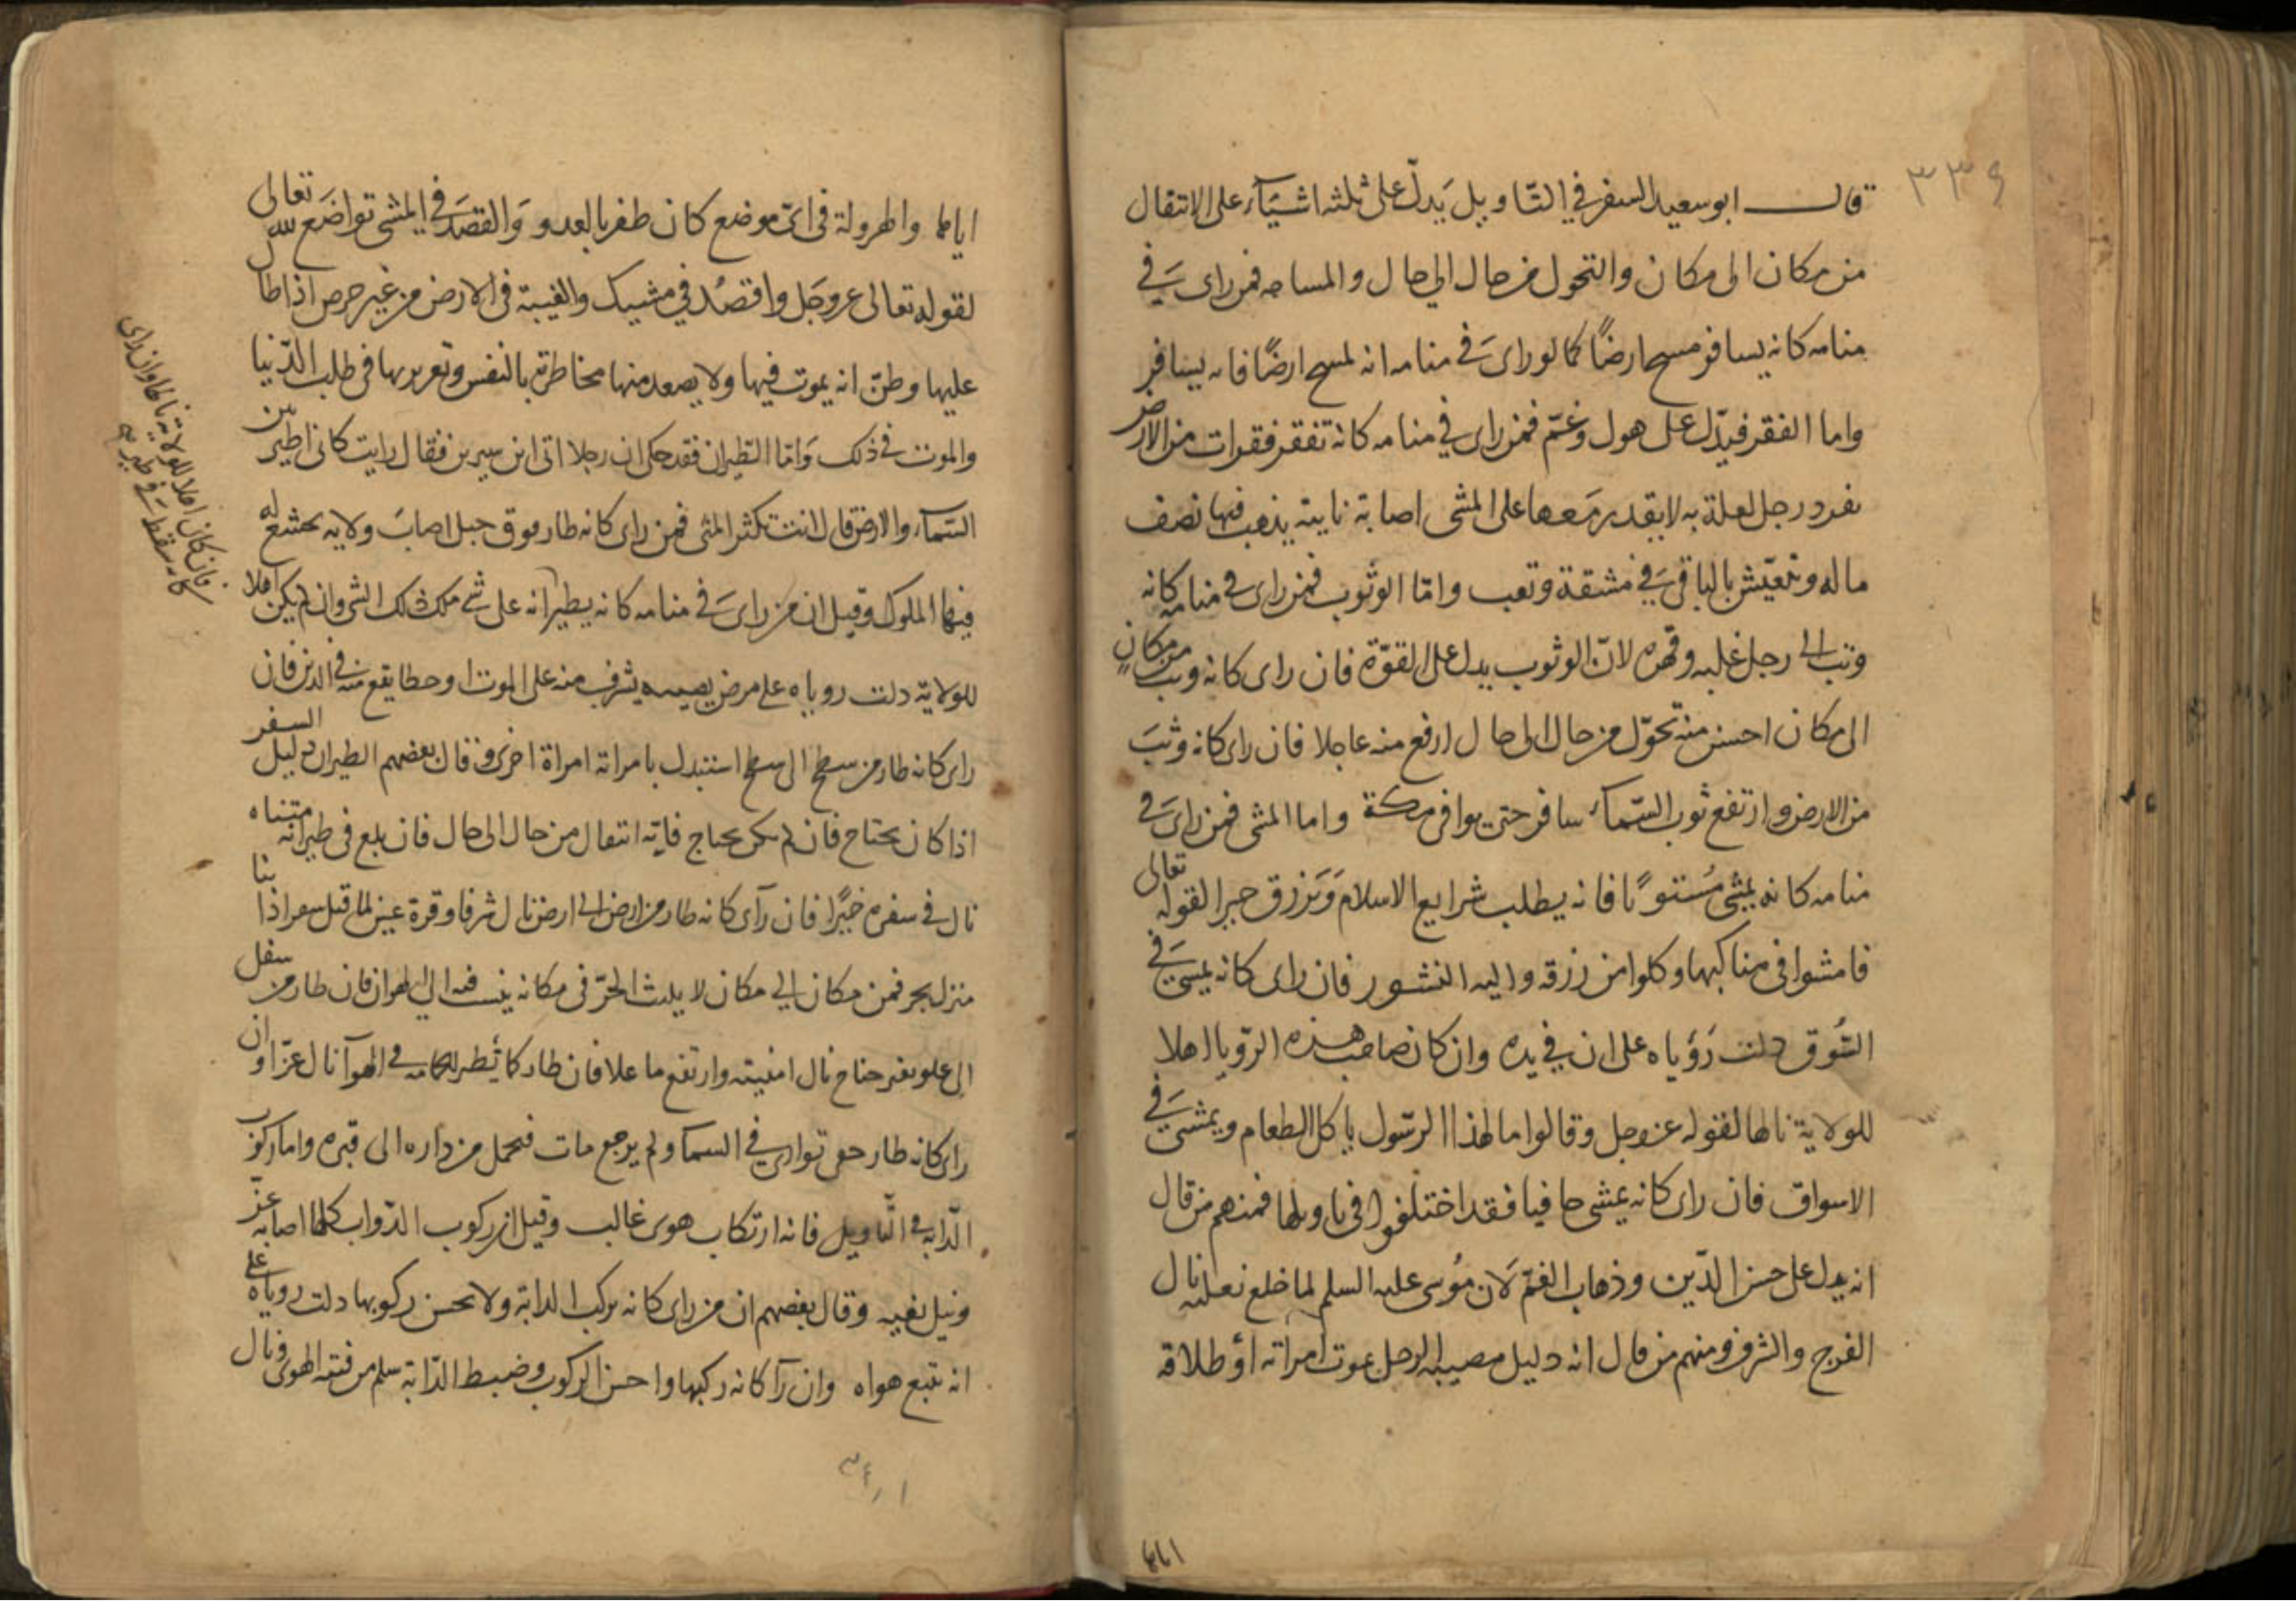 ٣٣٩
قال ابو سعيد السفر في التاويل يَدلّ على ثلثه اشيَآء على الانتقال
من مكان الى مكان والتحول من حال الي حال والمساحه فمن راى في
منامه كانه يسافر مسح ارضًا كما لو راى في منامه انه لمسح ارضًا فانه يسافر
واما الفقر فيدّل على هول وغمّ فمن راى في منامه كانه تفقر فقرات من الارض
بفرد رجل لعلة به لا يقدر معها على المشى اصابة نايبة يذهب فيها نصف
ماله وتعيّش بالباقي في مشقة وتعب وامّا الوثوب فمن راى في منامه كانه
وثب الى رجل غلبه وقهره لانّ الوثوب يدل على القوّة فان راى كانه وثب من مكانٍ
الى مكان احسن منه تحوّل من حال الى حال ارفع منه عاجلا فان راى كانه وثبَ
من الارض وارتفع ثوب السّمآء سافر حتى يوافى مكة واما المشى فمن راى في
منامه كانه يمشى مُستوًيا فانه يطلب شرايع الاسلام وَيَرزق خيرا لقوله تعالى
فامشوا في مناكبها وكلوا من رزقه واليه النشور فان راى كانه يمشي في
السُّوق دلت رُؤياه على ان في يده وان كان صاحب هذه الرّويا اهلا
للولاية نالها لقوله عز وجل وقالوا ما لهذا الرسّول ياكل الطعام ويمشى في
الاسواق فان راى كانه يمشى حافيا فقد اختلفوا في تاويلها فمنهم من قال
انه يدل على حسن الدّين وذهاب الغمّ لَان مُوسى عليه السلم لما خلع نعليه نال
الفرج والشرف ومنهم من قال انه دليل مصيبه الرجل بموت امراته أو طلاقه
١٨٤
اياها والهرولة فى ايّ موضع كان ظفر بالعدو وَالقصدَ في المشى تواضَع لله تعالى
لقوله تعالى عزوجَل واقصُد في مشيك والغيبة فى الارض من غير حرص اذا طا
عليها وظنّ انه يموت فيها ولا يصعد منها مخاطرة بالنفس وتعريرها في طلب الدّنيا
والموت في ذلك وَامّا الطيران فقد حكى ان رجلا اتى ابن سيرين فقال رايت كانى اطير بين
السّمآء والارض قال انت تكثر المنى فمن راى كانه طار فوق جبل اصابَ ولايه يخشع له
فيها الملوك وقيل ان من راى في منامه كانه يطير انه على شي ملك ذلك الشي وان لم يكن اهلا
للولايّة دلت روياه على مرض يصيبه يشرف منه على الموت او خطا يقع منه في الدين فان
راى كانه طار من سطح الى سطح استبدل بامراته امراة اخرى وقال بعضهم الطيران دليل السفر
اذا كان بجناح فان لم يكن بجناح فانّه انتقال من حال الى حال فان بلغ في طيرانه منتهاه
نال في سفره خيًرا فان رآى كانه طار من ارض الي ارض نال شرفا وقرة عين لما قيل شعر اذا نبا
منزل بحر فمن مكان الي مكان لا يلبث الحرّ فى مكانه ينسب فيه الي الهوان فان طار من سفل
الى علو بغير جناح نال امنيته وارتفع ما علا فان طار كما تُطير الحمامه في الهوآ نال عزّا وان
راى كانه طار حتى توارى في السمآ ولم يرجع مات فيحمل من داره الى قبره واما ركوب
الدّابه في التّاويل فانه ارتكاب هوى غالب وقيل ان ركوب الدّواب كلها اصابه عزّ
ونيل بغيه وقال بعضهم ان من راى كانه يركب الدابة ولا يحسن ركوبها دلت روياه على
انه يتبع هواه وان رآ كانه ركبها واحسن الركوب وضبط الدّابة سلم من فتنه الهوى ونال
فان كان اهلا للولاية نالها وان راى
كانه سقط في طيرانه